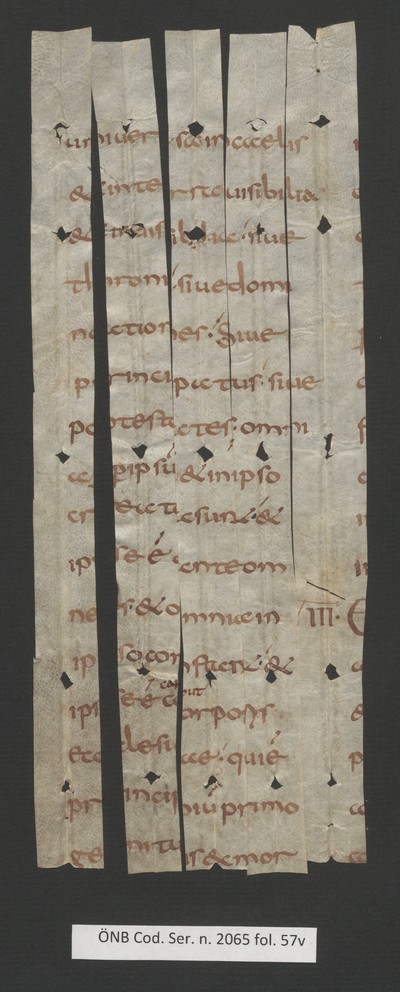 univer sa in caelis
& in terra visibilia
& invisibilia · sive
throni · sive domi
nationes · sive
principatus · sive
potestates · omni
a p ipsū & in ipso
creata sunt · &
ipse ē ante om
nes · & omnia in III · E
ipso constant · &
ipse ē caput corporis
ecclesiae · qui ē
principiū primo
genitus & mor
ÖNB Cod. Ser. n. 2065 fol. 57v